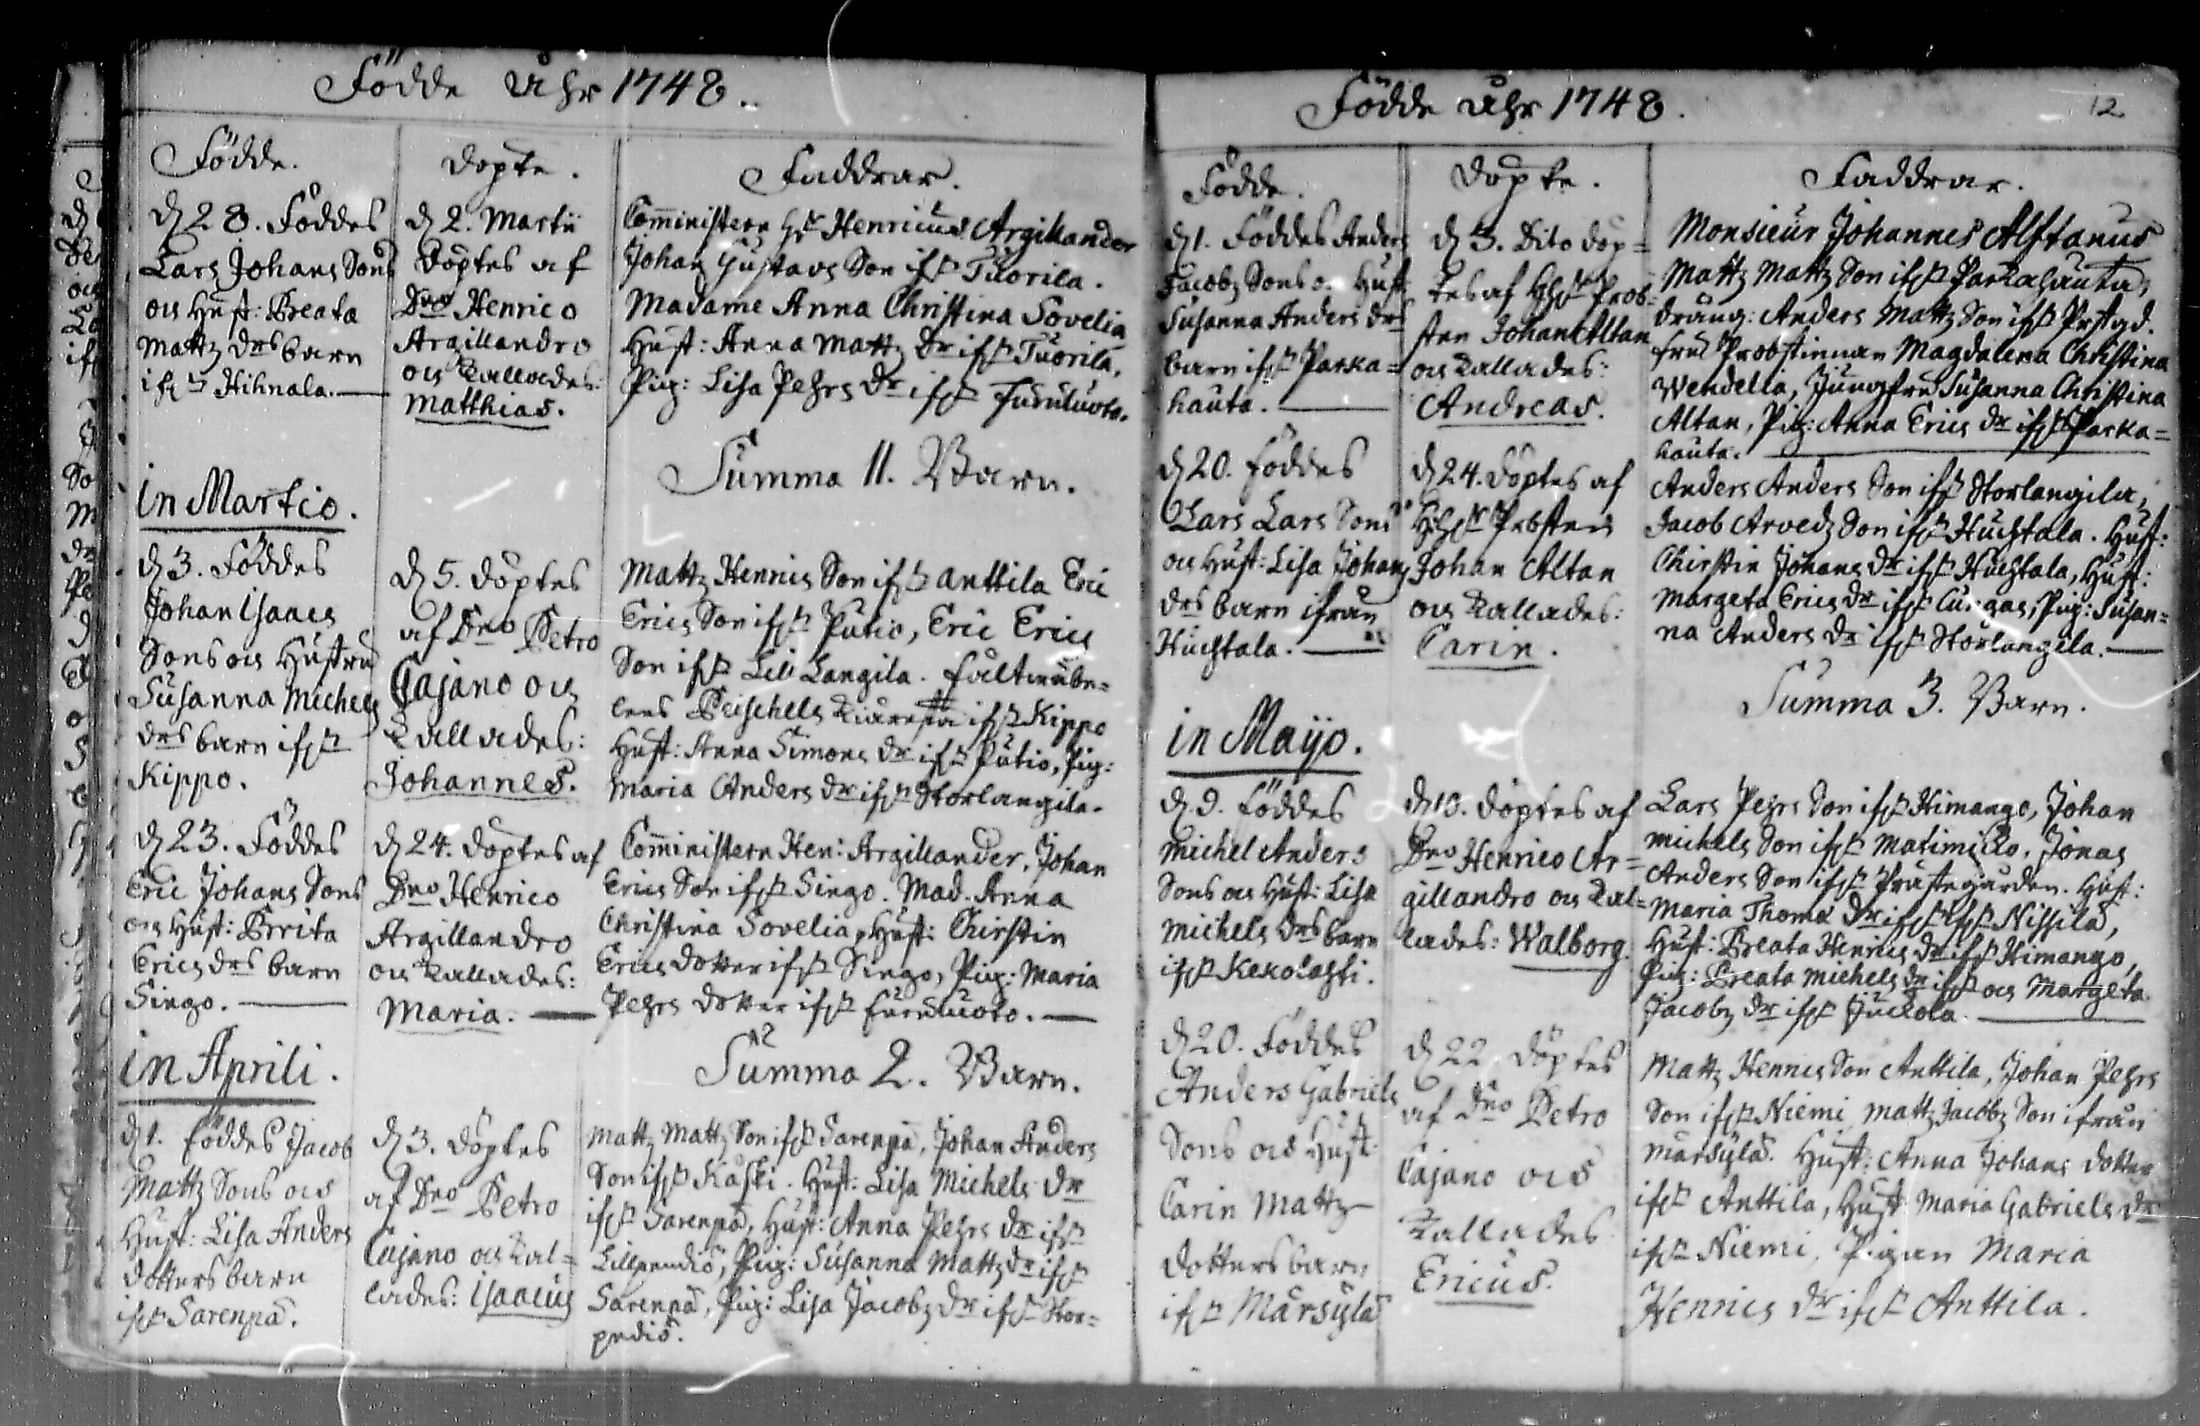 Födde Åhr 1748.
Födde.
d 28. Föddes
Lars Johans Sons
och Hust: Breata
Mattz drs barn
ifr Hihnala.
Döpte.
d 2. Martii
Döptes af
Dno Henrico
Argillandro
och kallades:
Matthias.
Faddrar.
Comministern Hr Henricus Argillander
Johan Gustavs Son ifr Tuorila.
Madame Anna Christina Sovelia
Hust: Anna Mattz dr ifr Tuorila,
Pig: Lisa Pehrs dr ifr Furuluoto.
Summa 11. Barn.
in Martio.
d 3. Föddes
Johan Isaacs
Sons och Hustru
Susanna Michels
drs barn ifr
Kippo.
d 5. döptes
af Dno Petro
Cajano och
kallades:
Johannes.
Mattz Henrics Son ifr Anttila Eric
Erics Son ifr Putio, Eric Erics
Son ifr Lill Langila. fältwäbe-
lens ifr Kippo
Hust: Anna Simons dr ifr Putio, Pig:
Maria Anders dr ifr Storlangila.
d 23. Föddes
Eric Johans Sons
och Hust: Brita
Erics drs barn
Singo.
d 24. döptes af
Dno Henrico
Argillandro
och kallades:
Maria.
Comministern Hen: Argillander, Johan
Erics Son ifr Singo. Mad. Anna
Christina Sovelia, Hust: Chirstin
Erics dotter ifr Singo, Pig: Maria
Pehrs dotter ifr Furuluoto.
Summa 2. Barn.
in Aprili.
d 1. föddes Jacob
Mattz Sons och
Hust: Lisa Anders
dotters barn
ifr Sarenpä.
d 3. döptes
af Dno Petro
Cajano och kal=
lades: Isaacus
Mattz Mattz Son ifr Sarenpä, Johan Anders
Son ifr Kaski. Hust: Lisa Michels dr
ifr Sarenpä, Hust: Anna Pehrs dr ifr
Lillpendiö, Pig: Susanna Mattz dr ifr
Sarenpä, Pig: Lisa Jacobz dr ifr Stor=
pediö.
Födde Åhr 1748.
12
Födde.
d 1. Föddes Anders
Jacobz Sons o. Hust
Susanna Anders drs
barn ifr Parka=
hauta.
Döpte.
d 3. dito döp=
tes af Prob-
sten Johan Altan
och kallades:
Andreas.
Faddrar.
Monsieur Johannes Alftanus
Mattz Mattz Son ifr Parkahauta,
dräng: Anders Mattz Son ifr Prstgd.
fru Probstinnan Magdalena Christina
Wendelia, Jungfru Susanna Christina
Altan, Pig: Anna Erics dr ifr Parka=
hauta.
d 20. föddes
Lars Lars Sons
och Hust: Lisa Johans
drs barn ifrån
Huchtala.
d 24. döptes af
Probsten
Johan Altan
och kallades:
Carin.
Anders Anders Son ifr Storlangila,
Jacob Arvedz Son ifr Huchtala. Hust:
Chirstin Johans dr ifr Huchtala, Hust:
Margeta Erics dr ifr Pig: Susan=
na Anders dr ifr Storlangila.
Summa 3. Barn.
in Maÿo.
d 9. föddes
Michel Anders
Sons och Hust: Lisa
Michels drs barn
ifr Kekolahti.
d 10. döptes af
Dno Henrico Ar=
gillandro och kal=
lades: Walborg.
Lars Pehrs Son ifr Himango, Johan
Michels Son ifr Jonas
Anders Son ifr Prästegården. Hust:
Maria Thomæ dr ifr Nissilä,
Hust: Breata Henrics dr ifr Himango,
Pig: Breata Michels dr ifr och Margeta
Jacobz dr ifr Juckola.
d 20. Föddes
Anders Gabriels
Sons och Hust:
Carin Mattz
dotters barn
ifr Märsylä
d 22 döptes
af Dno Petro
Cajano och
kallades
Ericus.
Mattz Henrics Son Anttila, Johan Pehrs
Son ifr Niemi Mattz Jacobz Son ifrån
Märsylä. Hust: Anna Johans dotter
ifr Anttila, Hust Maria Gabriels dr
ifr Niemi, Pigan Maria
Henrics dr ifr Anttila.